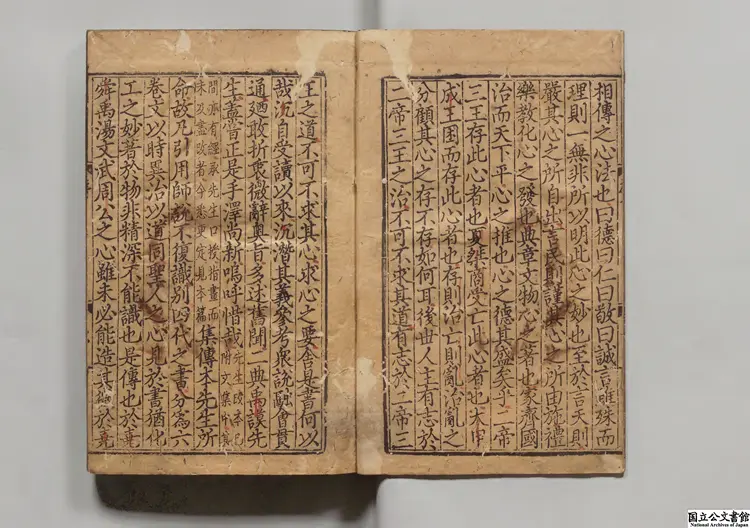 相傳之心法也曰德曰仁曰敬曰誠言雖殊而
理則一無非所以明此心之妙也至於言天則
嚴其心之所自出言民則謹其心之所由施禮
樂教化心之發也典章文物心之著也家齊國
治而天下平心之推也心之德其盛矣乎二帝
三王存此心者也夏桀商受亡此心者也太甲
成王困而存此心者也存則治亡則亂治亂之
分顧其心之存不存如何耳後世人主有志於
二帝三王之治不可不求其道有志於二帝三
王之道不可不求其心求心之要舍是書何以
哉沉自受讀以來沉潛其義參考衆說融會貫
通廼敢折衷微辭奧旨多述舊聞二典禹謨先
生蓋嘗正是手澤尚新嗚呼惜哉先生改本已附文集中其
間亦有經承先生口授指畫而未及盡改者今悉更定見本篇集傳本先生所
命故凡引用師說不復識別四代之書分爲六
卷文以時異治以道同聖人之心見於書猶化
工之妙著於物非精深不能識也是傳也於堯
舜禹湯文武周公之心雖未必能造其微於堯
国立公文書館
National Archives of Japan